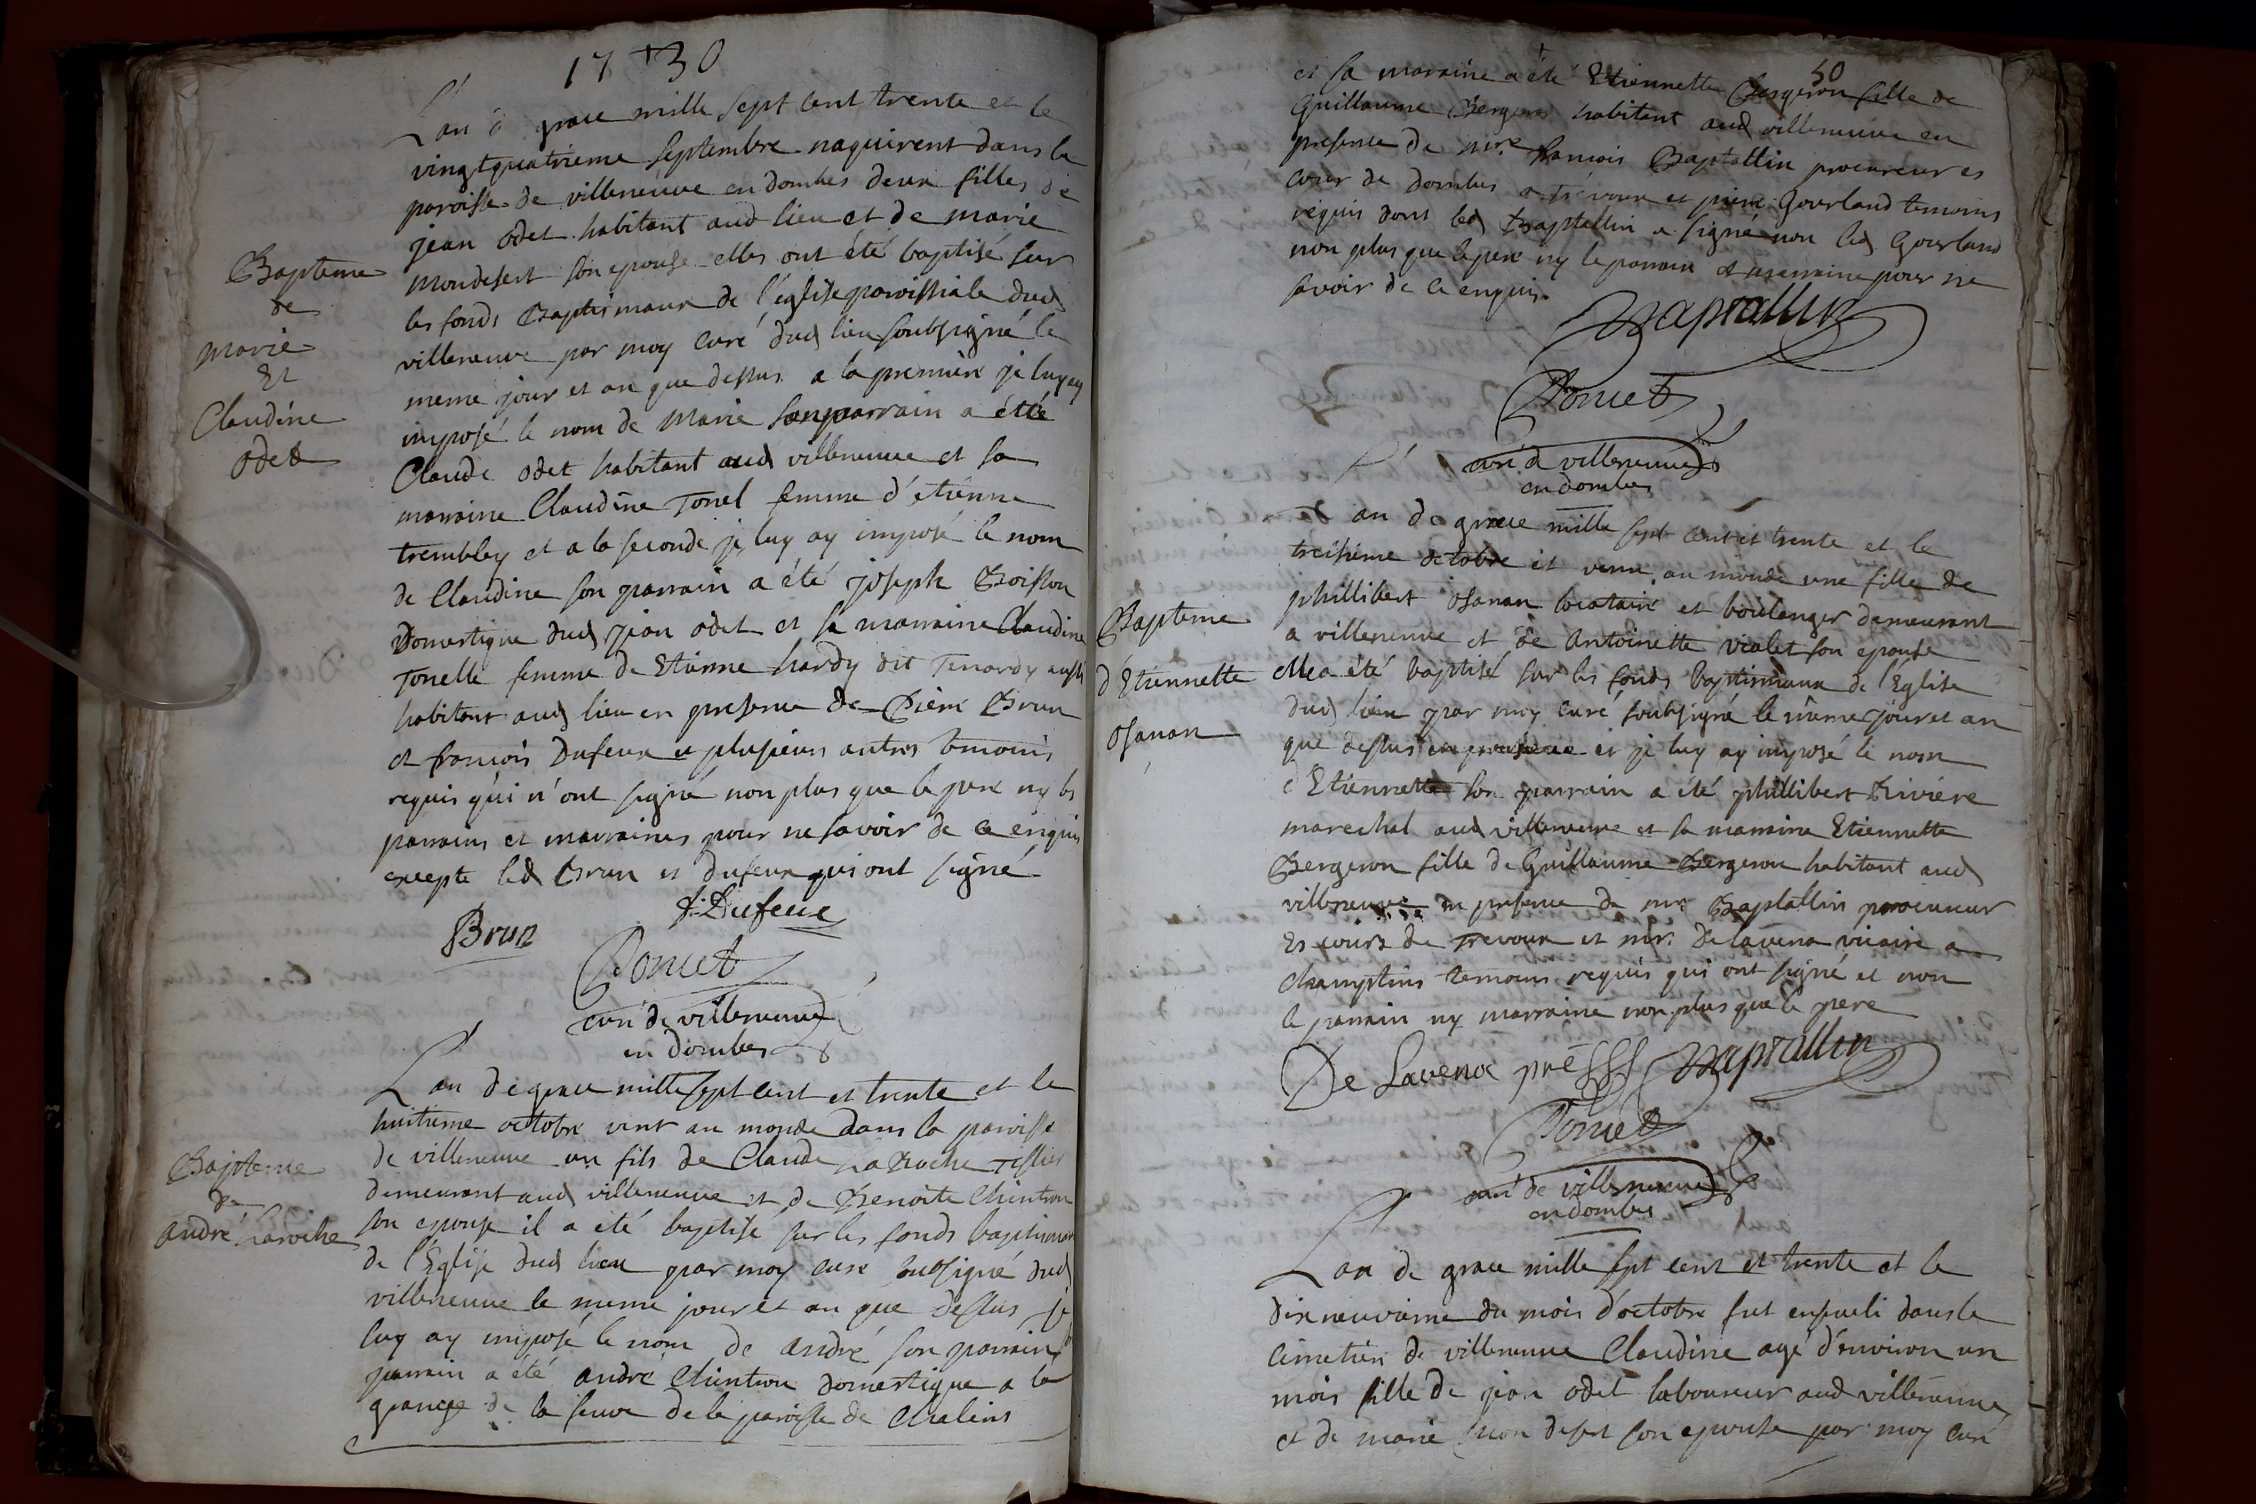 1730
L'an de grace mille sept cent trente et le
vingtquatrieme septembre naquirent dans la
paroisse de villeneuve en dombes deux filles de
jean odet habitant aud lieu et de marie
mondesert son epouse elles ont été baptisé sur
les fonds Baptismaux de l'église paroissiale dud
villeneuve par moy curé dud lieu soubsigné le
meme jour et an que dessus a la premiere je luy ay
imposé le nom de Marie son parrain a étté
Claude odet habitant aud villeneuve et sa
marraine Claudine Tonel femme d'etienne
trembley et a la seconde je luy ay imposé le nom
de Claudine son parrain a été joseph Boisson
Domestique dud jean odet et sa marraine Claudine
Tonelle femme de Etienne hardy dit Tenardy aussy
habitant aud lieu en presence de Pierre Brun
et francois Dufeux et plusieurs autres temoins
requis qui n'ont signé non plus que le pere ny les
parrains et marraines pour ne savoir de ce enquis
excepte led Brun et dufeux qui ont signé
Brun f. Dufeux
Poncet
curé de villeneuve
en dombes
Bapteme
de
Marie
Et
Claudine
odet
L'an de grace mille sept cent et trente et le
huitieme octobre vint au monde dans la paroisse
de villeneuve un fils de Claude La Roche Tessier
demeurant aud villeneuve et de Benoite Chintron
son epouse il a été baptisé sur les fonds baptismaux
de l'Eglise dud lieu par moy curé subsigné dud
villeneuve le meme jour et an que dessus je
luy ay imposé le nom de andré son parrain
parrain a été andré Chintron domestique a la
grange de la serve de la paroisse de Chaleins
Bapteme
de
andré Laroche
50
et sa maraine a été Etiennette Bergeron fille de
Guillaume Bergeron habitant aud villeneuve en
presence de mre francois Baptallin procureur es
cour de dombes a trevoux et pierre Gourland temoins
requis dont led Baptallin a signé non led Gourland
non plus que le pere ny le parrain et marraine pour ne
savoir de ce enquis.
Baptallin
Poncet
curé de villeneuve
en dombes
L'an de grace mille sept cent et trente et le
treisieme octobre est venu au monde une fille de
phillibert osanan locataire et boulenger demeurant
a villeneuve et de Antoinette Violet son epouse
elle a été baptisé sur les fonds baptismaux de l'Eglise
dud lieu par moy curé soubsigné le même jour et an
que dessus en presence et je luy ay imposé le nom
d'Etiennette son parrain a été phillibert Riviere
marechal aud villeneuve et sa marraine Etiennette
Bergeron fille de Guillaume Bergeron habitant aud
villeneuve en presence de mr. Baptallin procureur
Es cours de Trevoux et mr. Delavena vicaire a
champtins temoins requis qui ont signé et non
le parrain ny marraine non plus que le pere
De Lavena prêss Baptallin
Ponced
curé de villeneuve
en dombes
Bapteme
d'Etiennette
osanan
L'an de grace mille sept cent et trente et le
dix neuvieme du mois d'octobre fut enseveli dans le
cimetiere de villeneuve Claudine agé d'environ un
mois fille de jean odet laboureur aud villeneuve
et de marie mon desert son epouse par moy curé